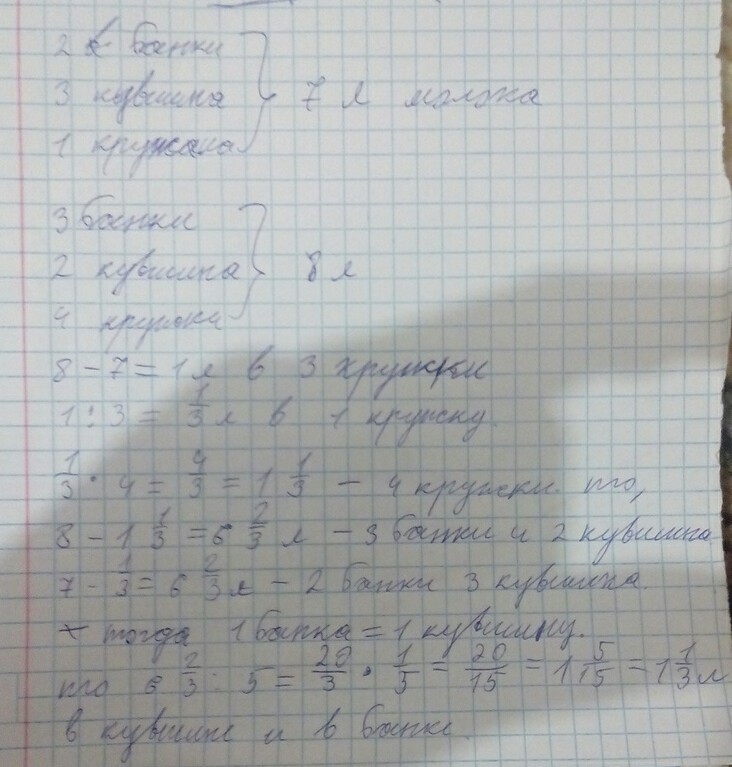 2 банки
3 кувшина
1 кружка
7 л молока
3 банки
2 кувшина
4 кружки
8 л
8 - 7 = 1 л в 3 кружки
1 : 3 = 1/3 л в 1 кружку.
1/3 · 4 = 4/3 = 1 1/3 - 4 кружки то,
8 - 1 1/3 = 6 2/3 л - 3 банки и 2 кувшина
7 - 1/3 = 6 2/3 л - 2 банки 3 кувшина.
тогда 1 банка = 1 кувшину.
то 6 2/3 : 5 = 20/3 · 1/5 = 20/15 = 1 5/15 = 1 1/3 л
в кувшине и в банке.